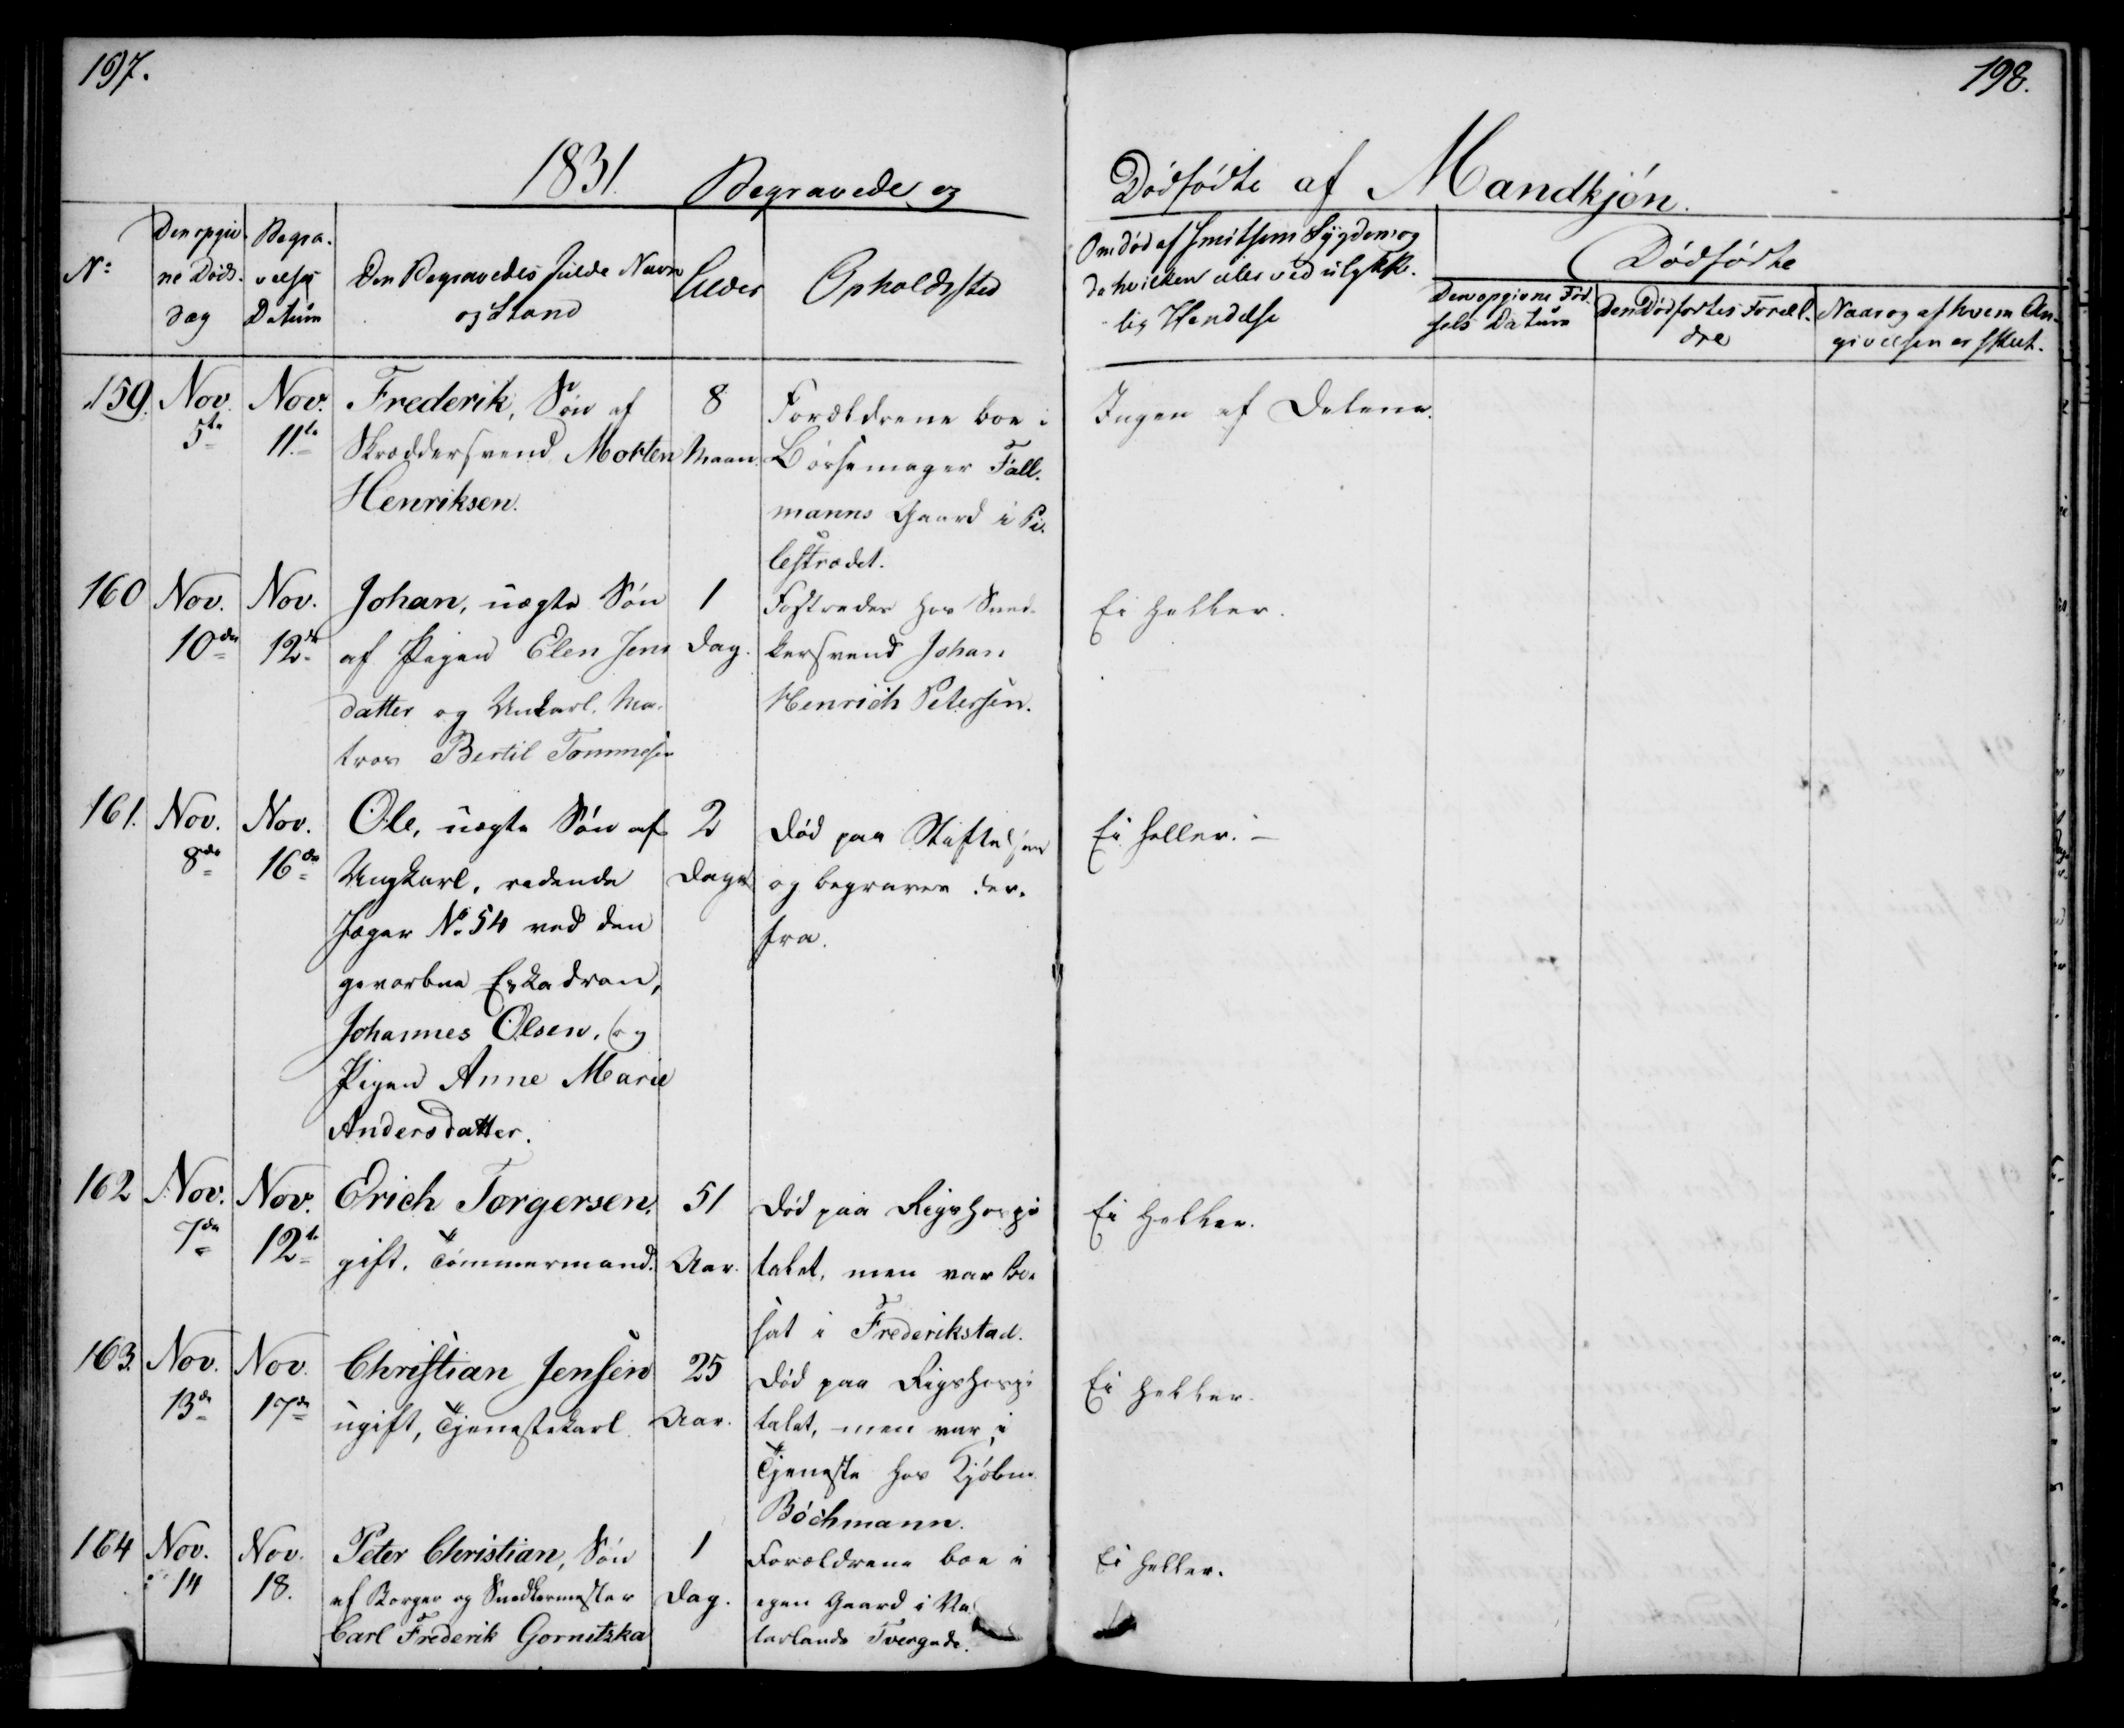 197.
198.
1831. Begravede og
Dødfødte af Mandkjøn.
No
Den opgiv-
ne Døds-
dag
Begra-
velses
Datum
Den Begravedes fulde Navn
og Stand
Alder
Opholdssted
Om død af smitsom Sygdom og
da hvilken eller ved ulykke-
lig Hændelse
Dødfødte
Den opgivne Fød-
sels Datum
Den Dødfødtes Foræl-
dre
Naar og af hvem An-
givelsen er skeet.
159. Nov. 5te Nov. 11te Frederik, Søn af
Skræddersvend Morten
Henriksen.
8
Maan.
Forældrene boe i
Bøssemager Fall-
manns Gaard i Pi-
lestrædet.
Ingen af Delene.
160 Nov. 10de Nov. 12te Johan, uægte Søn
af Pigen Elen Jens
datter og Unkarl. Ma-
tros Bertil Tommesen
1
Dag.
Fostredes hos Sned-
kersvend Johan
Henrich Petersen.
Ei heller.
161. Nov. 8de Nov. 16de Ole, uægte Søn af
Ungkarl, ridende
Jæger No 54 ved den
gevorbne Eskadron,
Johannes Olsen, og
Pigen Anne Marie
Andersdatter.
2
Dage
Død paa Stiftelsen
og begraves der-
fra.
Ei heller. –
162 Nov. 7de Nov. 12te Erich Torgersen,
gift, Tømmermand.
51
Aar.
Død paa Rigshospi
talet, men var Bo-
sat i Frederikstad.
Ei heller.
163. Nov. 13de Nov. 17de Christian Jensen
ugift, Tjenestekarl
25
Aar.
Død paa Rigshospi
talet, men var i
Tjeneste hos Kjøbm.
Böchmann.
Ei heller.
164 Nov. 14 Nov. 18. Peter Christian, Søn
af Borger og Snedkermester
Carl Frederik Gornitzka
1
Dag.
Forældrene boe i
egen Gaard i Va-
terlands Tvergade.
Ei heller.